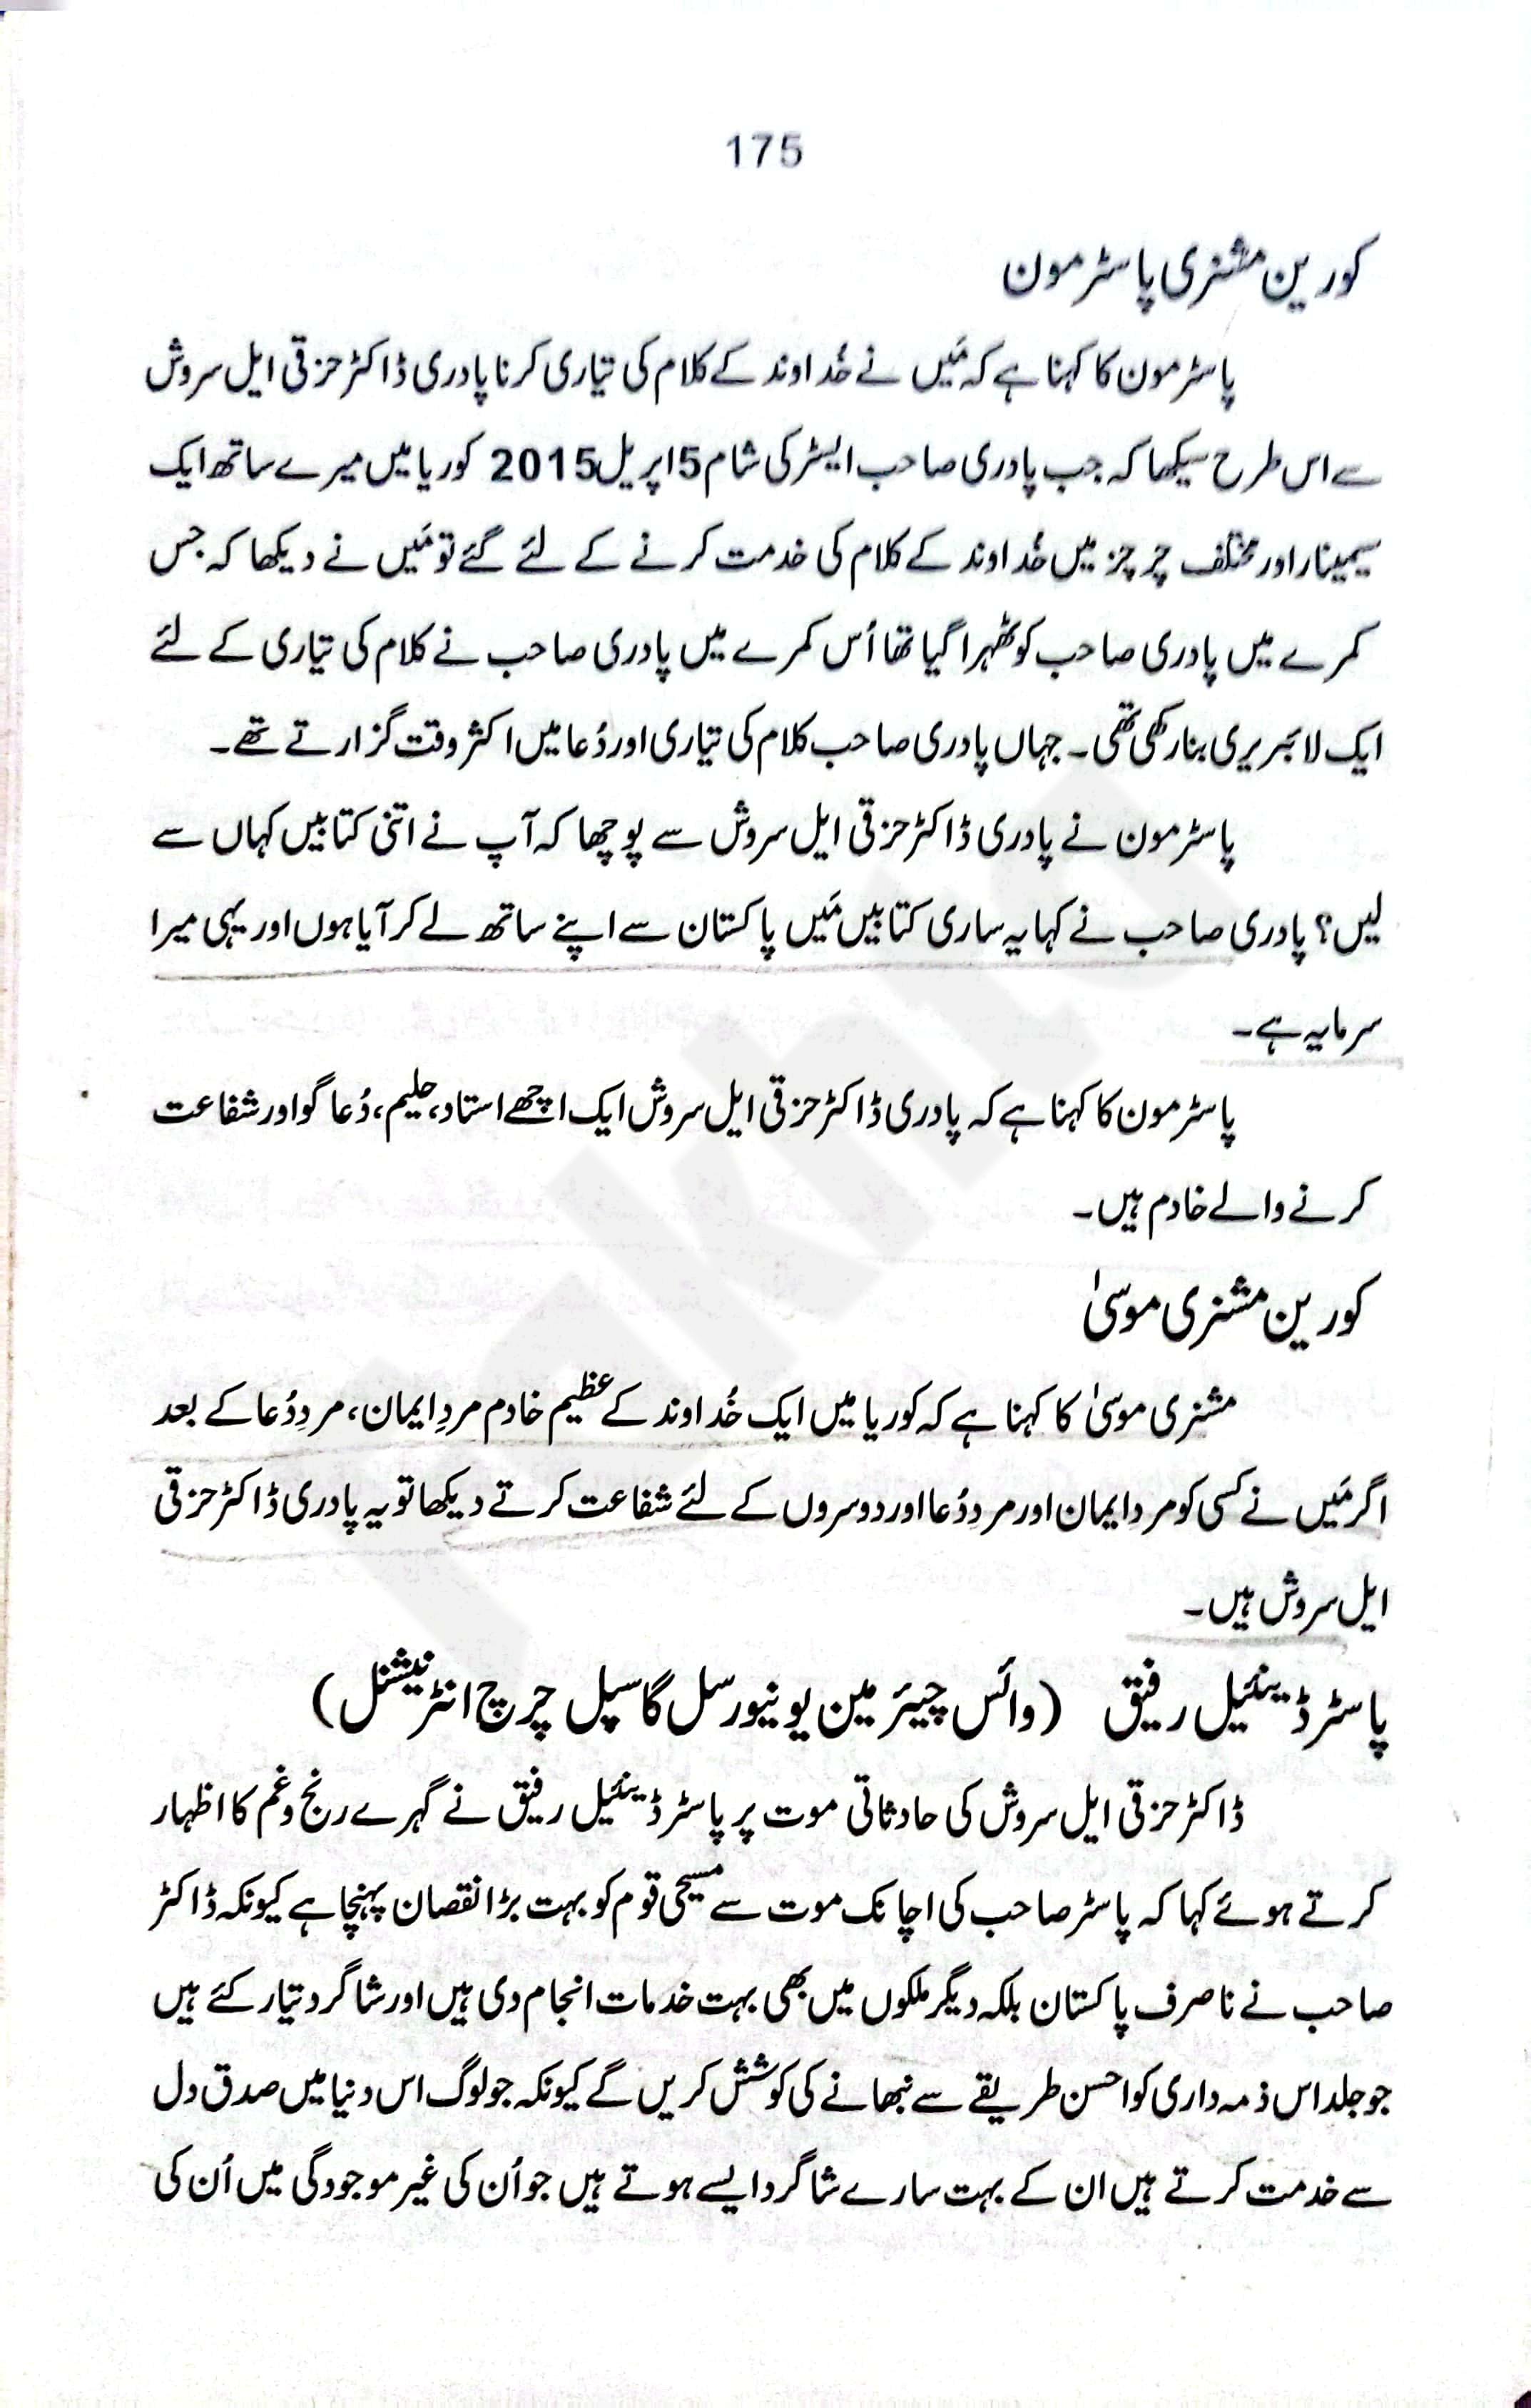 175
کورین مشنری پاسٹر مون
پاسٹر مون کا کہنا ہے کہ مَیں نے خُداوند کے کلام کی تیاری کرنا پادری ڈاکٹر حزقی ایل سروش
سے اس طرح سیکھا کہ جب پادری صاحب ایسٹر کی شام 5 اپریل 2015 کوریا میں میرے ساتھ ایک
سیمینار اور مختلف چرچز میں خُداوند کے کلام کی خدمت کرنے کے لئے گئے تو مَیں نے دیکھا کہ جس
کمرے میں پادری صاحب کو ٹھہرا گیا تھا اُس کمرے میں پادری صاحب نے کلام کی تیاری کے لئے
ایک لائبریری بنا رکھی تھی۔ جہاں پادری صاحب کلام کی تیاری اور دُعا میں اکثر وقت گزارتے تھے۔
پاسٹر مون نے پادری ڈاکٹر حزقی ایل سروش سے پوچھا کہ آپ نے اتنی کتابیں کہاں سے
لیں؟ پادری صاحب نے کہا یہ ساری کتابیں مَیں پاکستان سے اپنے ساتھ لے کر آیا ہوں اور یہی میرا
سرمایہ ہے۔
پاسٹر مون کا کہنا ہے کہ پادری ڈاکٹر حزقی ایل سروش ایک اچھے استاد، حلیم، دُعا گو اور شفاعت
کرنے والے خادم ہیں۔
کورین مشنری موسیٰ
مشنری موسیٰ کا کہنا ہے کہ کوریا میں ایک خُداوند کے عظیم خادم مردِ ایمان، مردِ دُعا کے بعد
اگر مَیں نے کسی کو مردِ ایمان اور مردِ دُعا اور دوسروں کے لئے شفاعت کرتے دیکھا تو یہ پادری ڈاکٹر حزقی
ایل سروش ہیں۔
پاسٹر ڈینئیل رفیق (وائس چیئر مین یونیورسل گاسپل چرچ انٹرنیشنل)
ڈاکٹر حزقی ایل سروش کی حادثاتی موت پر پاسٹر ڈینئیل رفیق نے گہرے رنج و غم کا اظہار
کرتے ہوئے کہا کہ پاسٹر صاحب کی اچانک موت سے مسیحی قوم کو بہت بڑا نقصان پہنچا ہے کیونکہ ڈاکٹر
صاحب نے نا صرف پاکستان بلکہ دیگر ملکوں میں بھی بہت خدمات انجام دی ہیں اور شاگرد تیار کئے ہیں
جو جلد اس ذمہ داری کو احسن طریقے سے نبھانے کی کوشش کریں گے کیونکہ جو لوگ اس دنیا میں صدق دل
سے خدمت کرتے ہیں ان کے بہت سارے شاگرد ایسے ہوتے ہیں جو اُن کی غیر موجودگی میں اُن کی